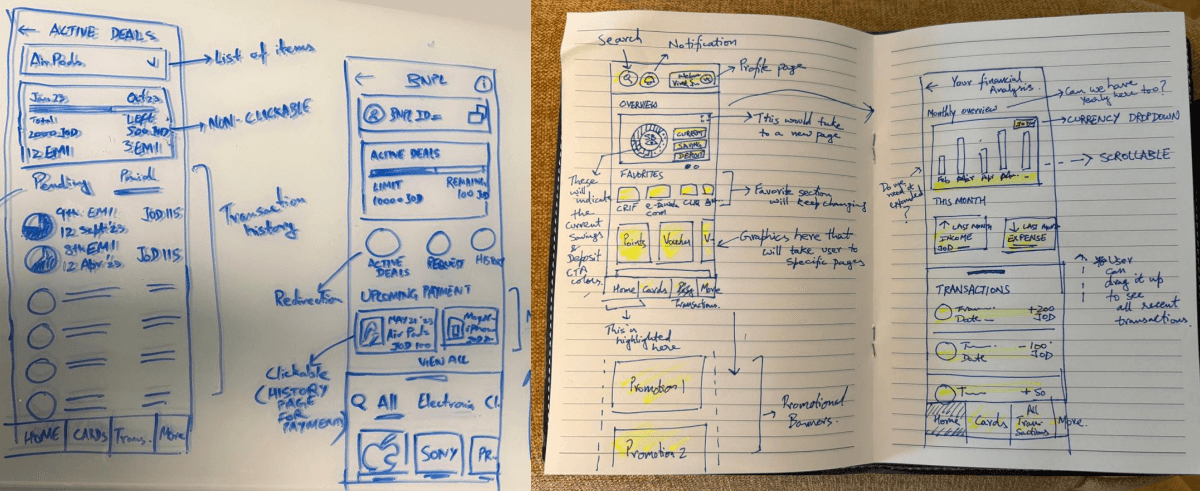 ← ACTIVE DEALS
Air Pods
List of items
Jan 23 Oct 23
Total Left
20000 JOD 500 JOD
12 EMI 3 EMI
NON-CLICKABLE
Pending Paid
9th EMI JOD 115
12 Sept '23
8th EMI JOD 115
12 Apr. '23
Transaction
history
HOME CARDS Trans. More
← BNPL
BNPL ID=
ACTIVE DEALS
LIMIT REMAINING
10000 JOD 100 JOD
ACTIVE
DEALS
REQUEST
Redirection
UPCOMING PAYMENT
MAY 21 '23
Air Pods
JOD 100
VIEW ALL
Clickable
(HISTORY
PAGE
FOR
PAYMENT)
All Electronic Cl
SONY PR-
Search
Notification
Profile page
OVERVIEW
This would take
to a new page
CURRENT
SAVING
DEPOSIT
These
will
indicate
the
current
Savings
&
Deposit
CTA
colors.
FAVORITES
CRIF
Favorite section
will keep changing
Points Voucher V-
Graphics here that
will take user to
Specific pages
Home Cards More
Transactions
This is
highlighted
here
Promotion 1
Promotion 2
Promotional
Banners.
← Your financial
Analysis.
Monthly overview
Can we have
yearly here too?
CURRENCY DROPDOWN
SCROLLABLE
Do we
need it
THIS MONTH
↑ LAST MONTH
INCOME
JOD
↓ LAST
EXPENSE
User
can
drag it up
to see
all recent
transactions.
TRANSACTIONS
+200
Date JOD
-100
Date JOD
+50
Home Cards All
Tran-
Sactions
More.